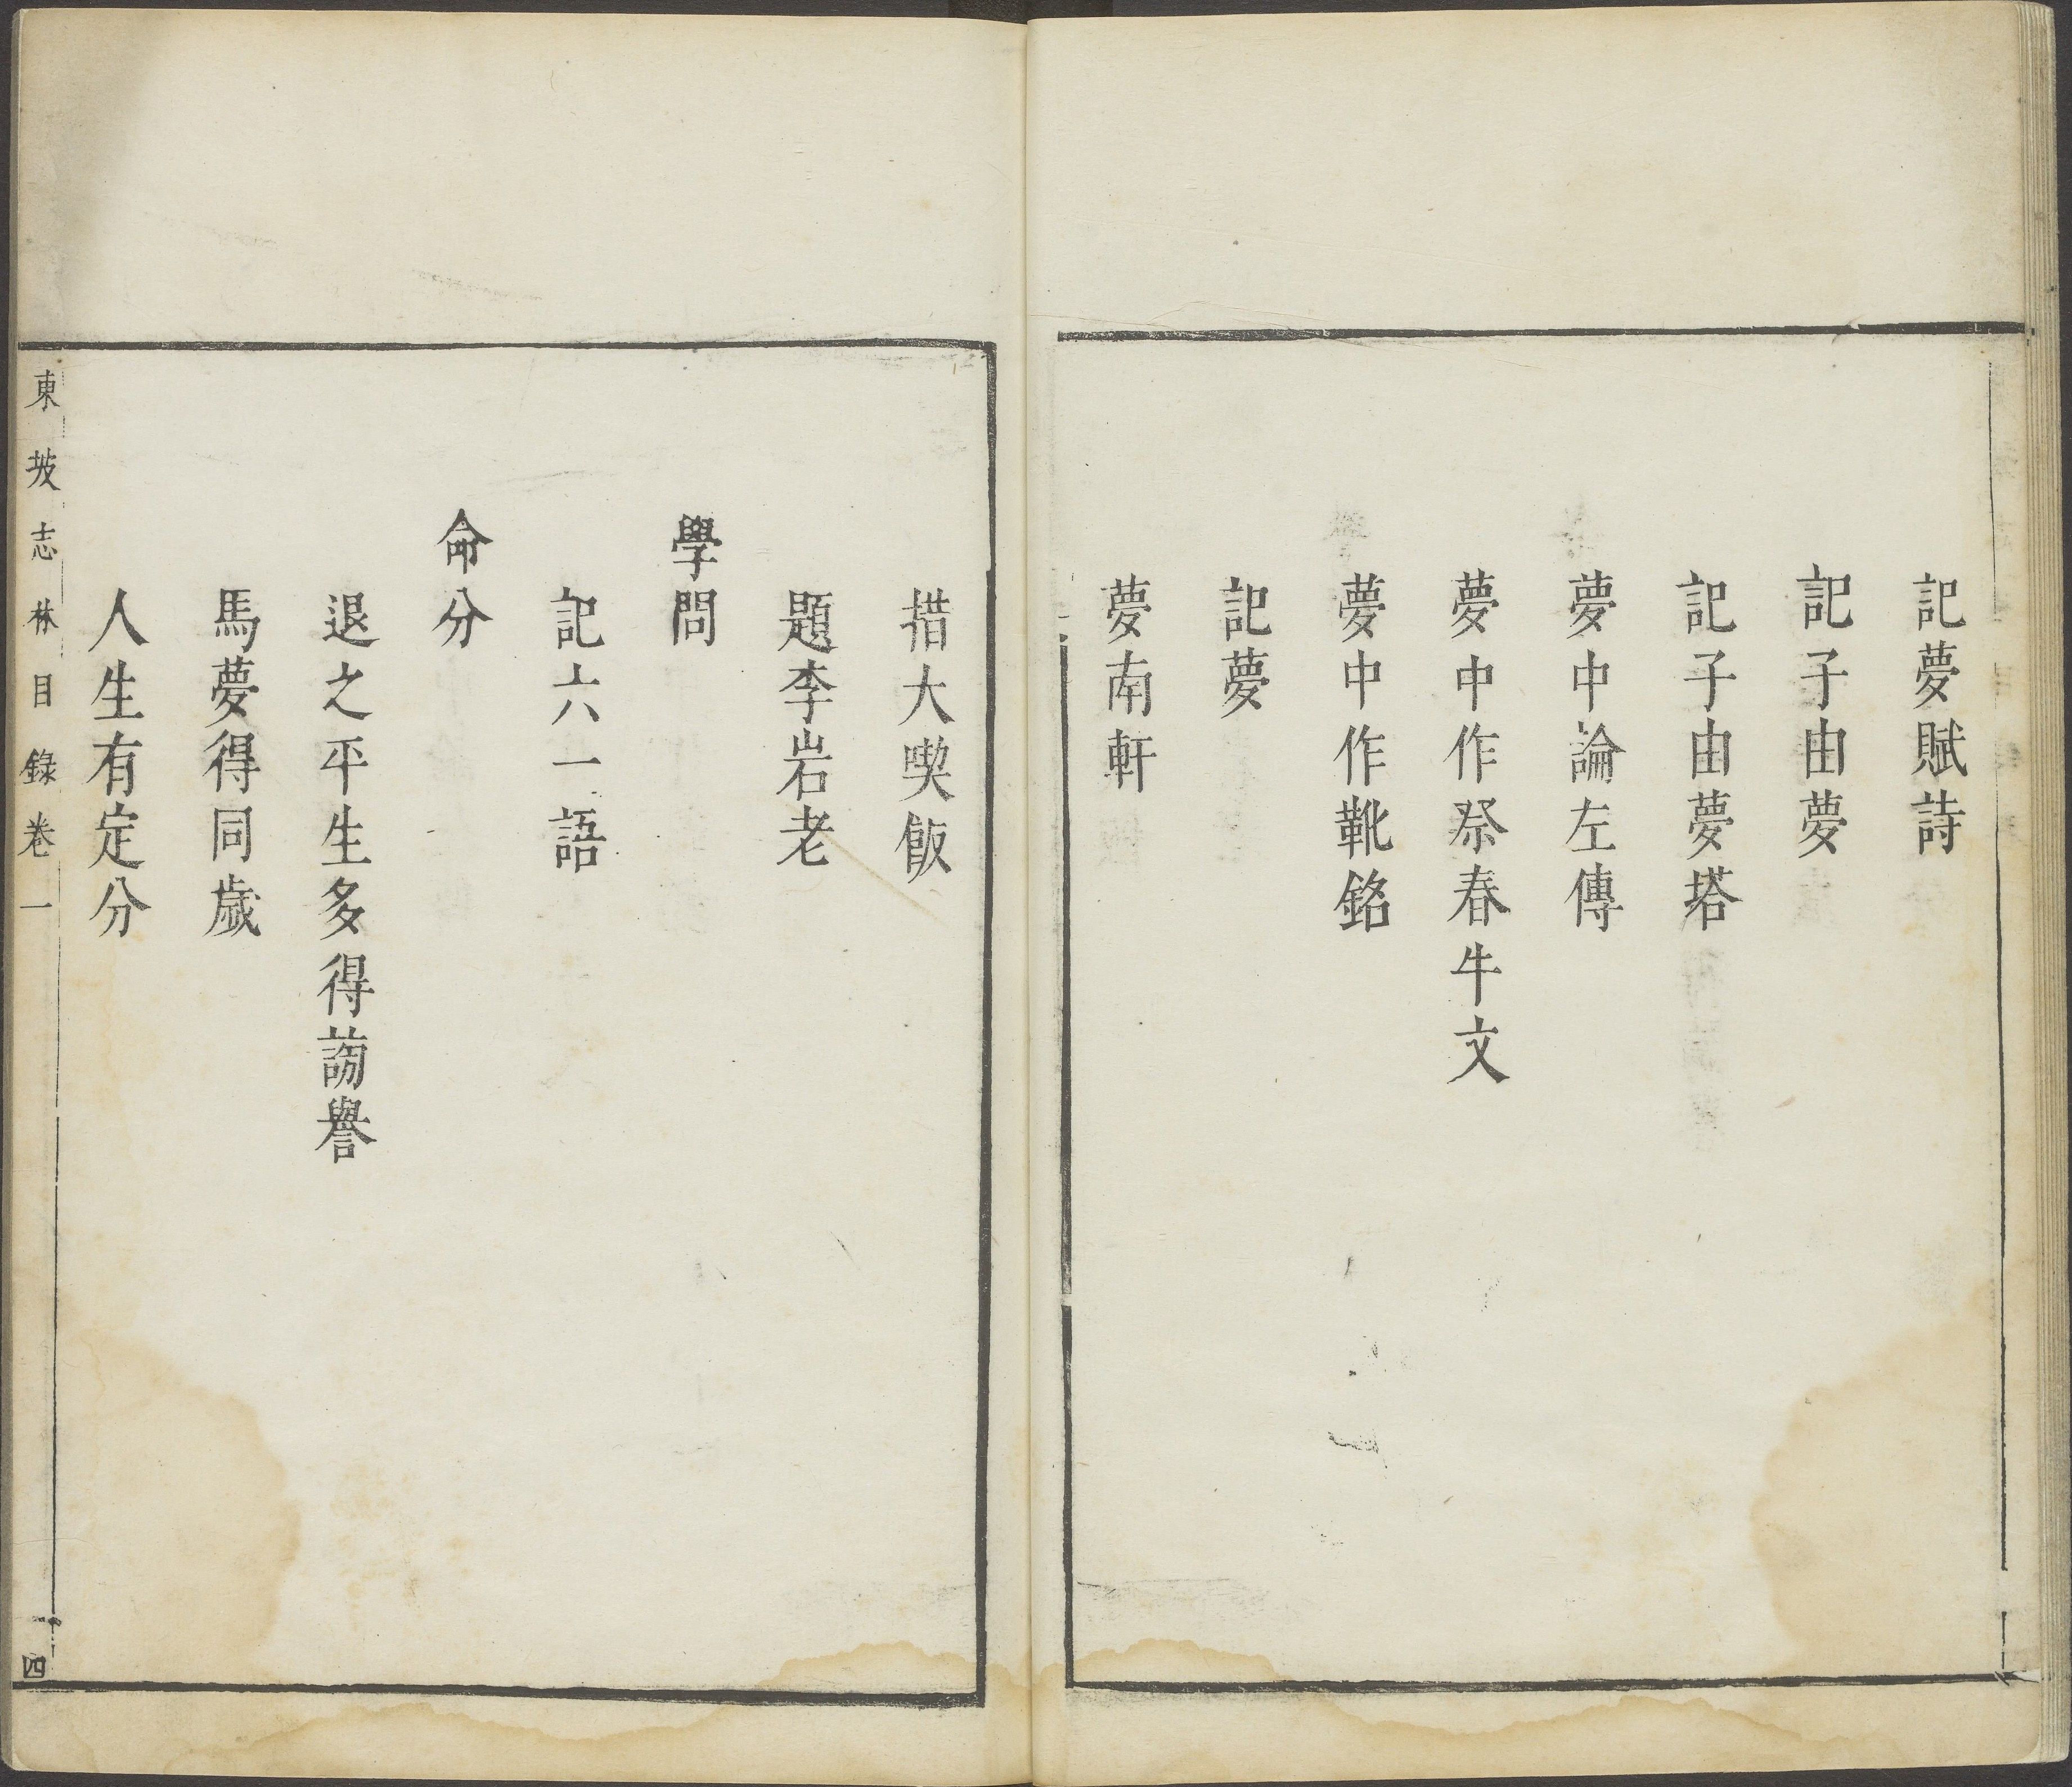 記夢賦詩
記子由夢
記子由夢塔
夢中論左傳
夢中作祭春牛文
夢中作靴銘
記夢
夢南軒
措大喫飯
題李岩老
學問
記六一語
命分
退之平生多得謗譽
馬夢得同歲
人生有定分
東坡志林目錄卷一
四